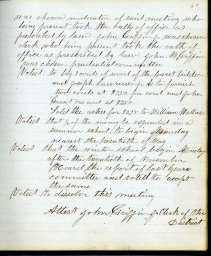 was chosen moderator of said meeting who
being present took the oath of office as
prescribed by law John Griffin was chosen
clerk who being present took the oath of
office as prescribed by law John Griffin
was chosen prudential committee
Voted to buy cords of wood of the lowest bidder
and Joseph to furnish
four cords at
Sold the ashes for to William Wallace
Voted that of the money be expended in a
summer school to begin Monday
nearest the twentieth of May
Voted that the winter school begin Monday
after the twentieth of November
Heard the report of last years
committee and voted to accept
the same
Voted to dissolve this meeting
Attest John Griffin Clerk of the
District